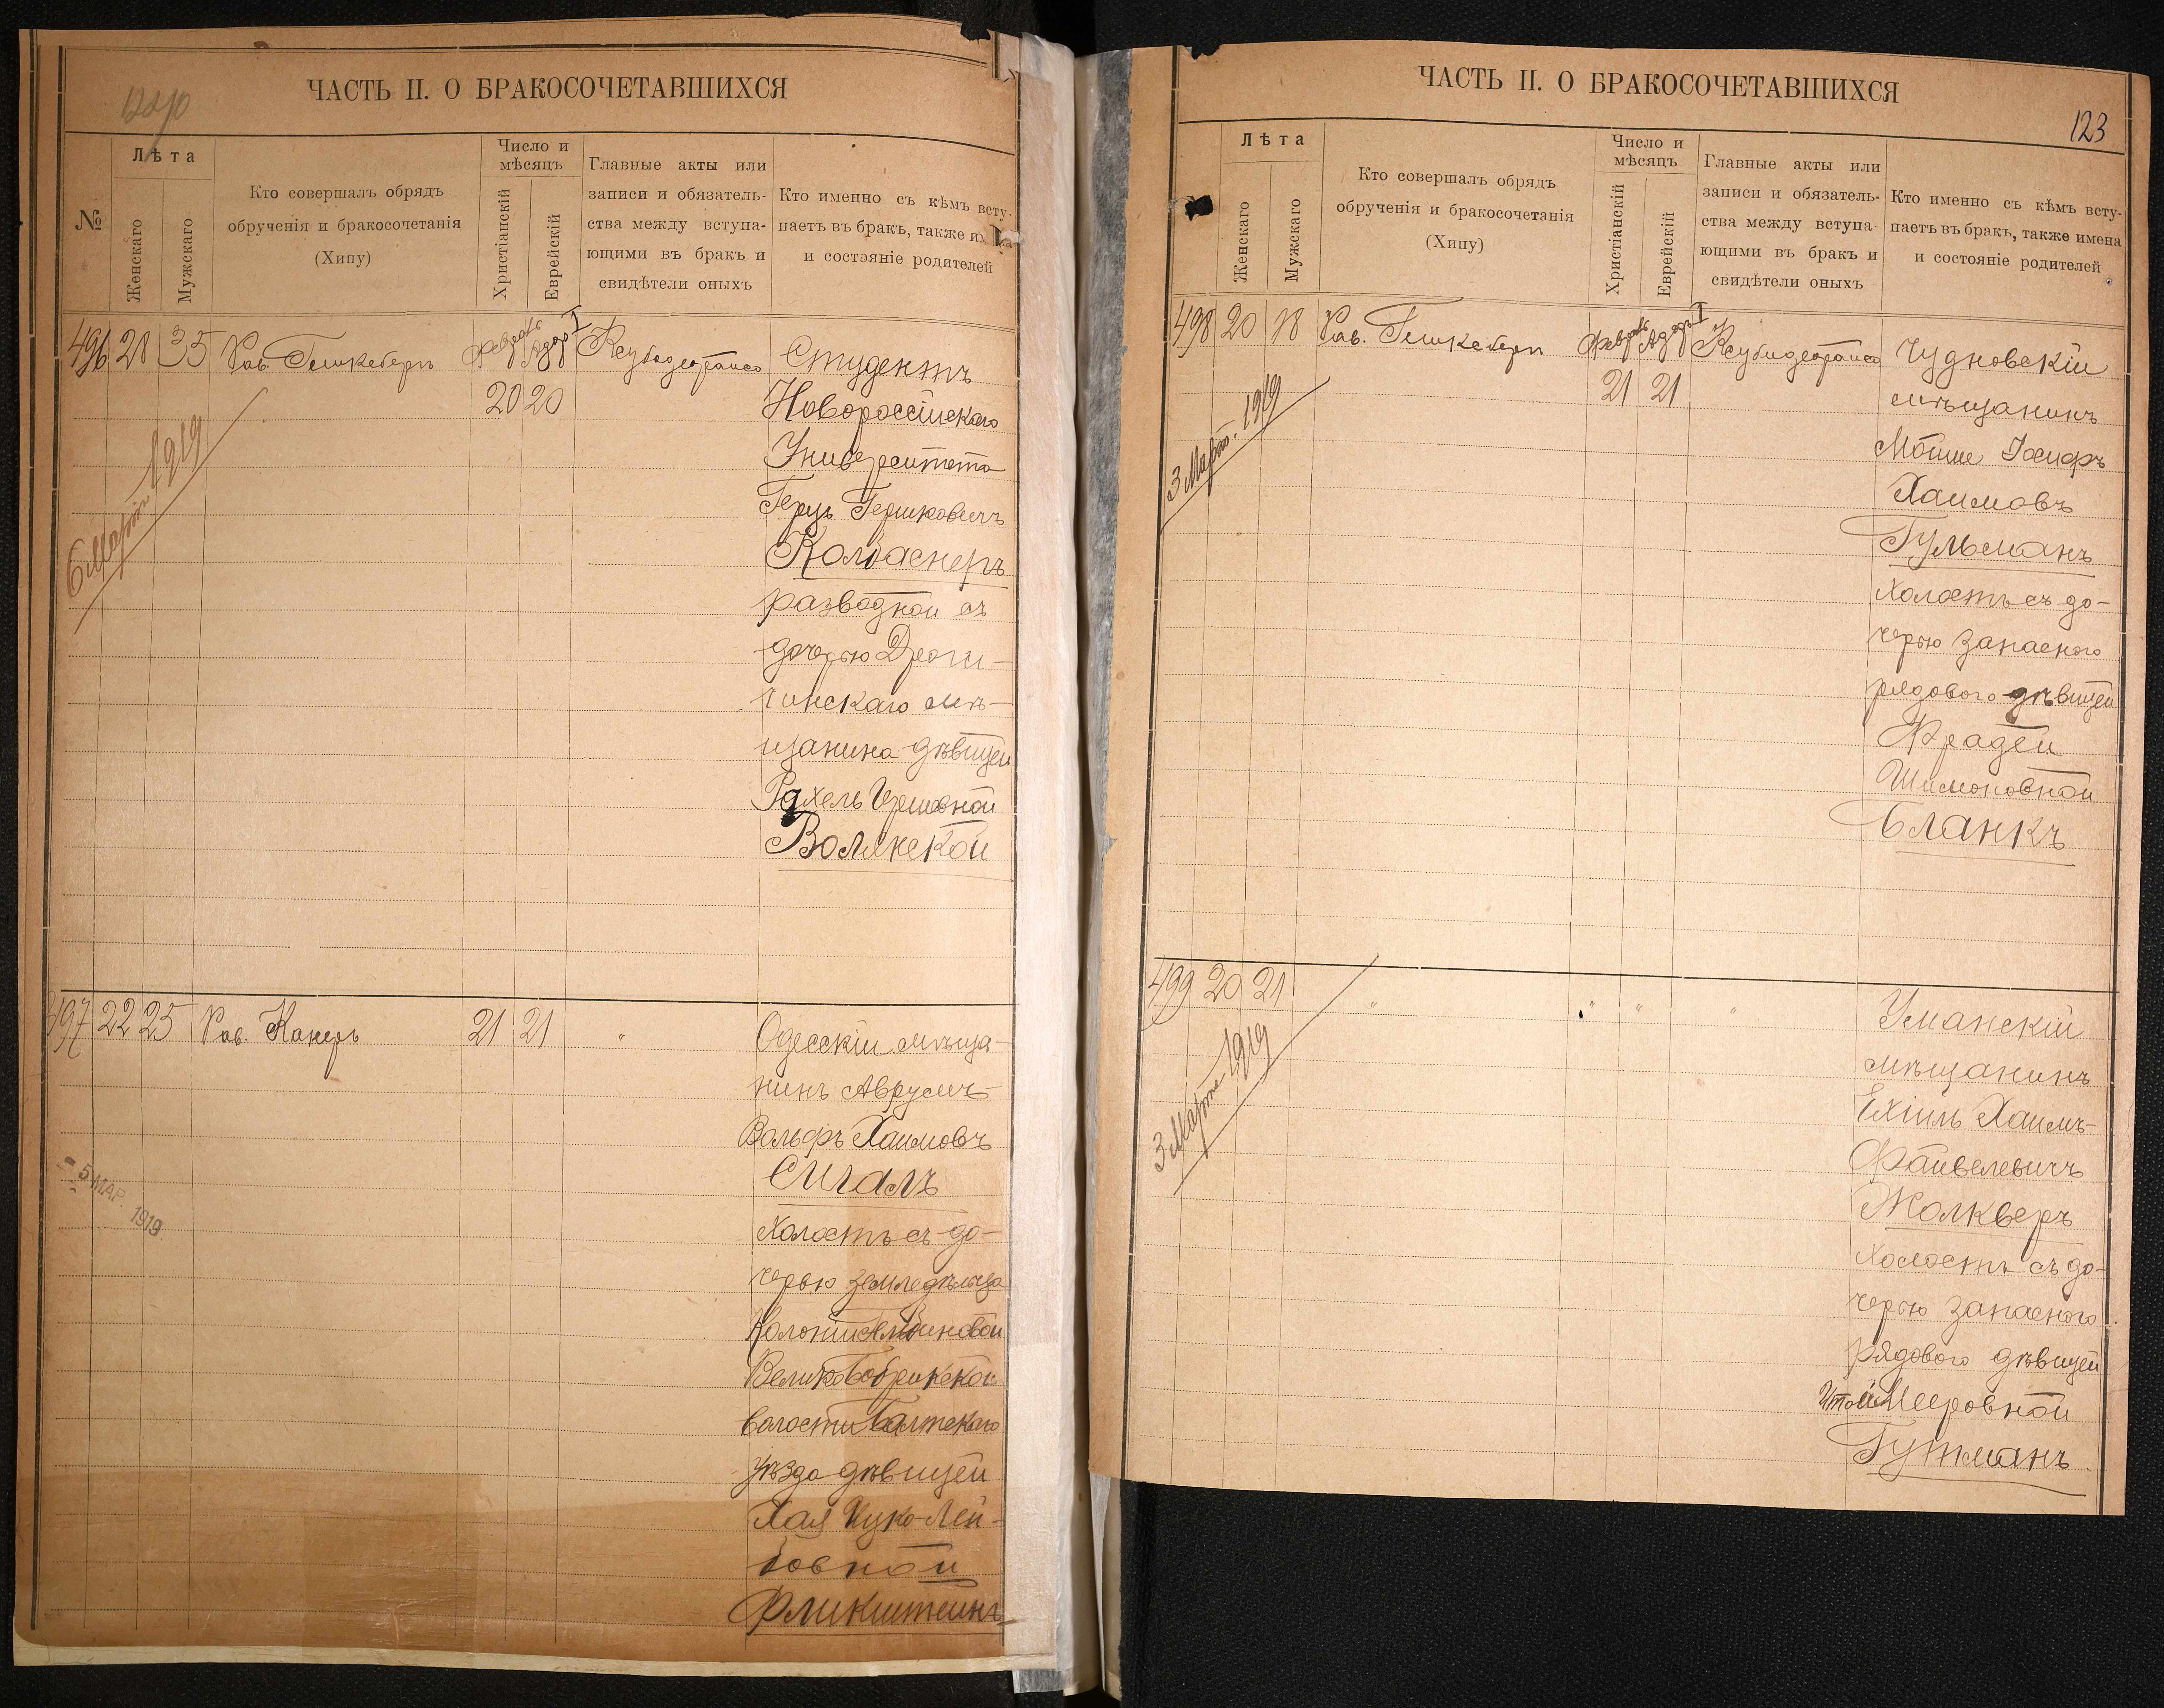 ЧАСТЬ II. О БРАКОСОЧЕТАВШИХСЯ
№
Лѣта
Женскаго
Мужскаго
Кто совершалъ обрядъ
обрученія и бракосочетанія
(Хипу)
Число и
мѣсяцъ
Христіанскій
Еврейскій
Главные акты или
записи и обязатель-
ства между вступа-
ющими въ бракъ и
свидѣтели оныхъ
Кто именно съ кѣмъ всту-
паетъ въ бракъ, также
и состояніе родителей
496 35 Рав.
Февраль Адаръ I
20 20
6 Марта 1919
Студентъ
Новороссійскаго
Университета
Герцъ Гершковичъ
Колбаснеръ
разводной съ
дочерью Дроги-
чинскаго мѣ-
щанина дѣвицей
Рахель
Волянской
497 22 25 Рав. Канеръ 21 21 "
- 5 МАР. 1919
Одесскій мѣща-
нинъ Аврумъ-
Вольфъ Хаимовъ
Сигалъ
Холостъ съ до-
черью земледѣльца
Колоніи
волости Балтскаго
уѣзда дѣвицей
Хая Цуко-Лей-
бовной
Фликштейнъ
ЧАСТЬ II. О БРАКОСОЧЕТАВШИХСЯ
123
Лѣта
Женскаго
Мужскаго
Кто совершалъ обрядъ
обрученія и бракосочетанія
(Хипу)
Число и
мѣсяцъ
Христіанскій
Еврейскій
Главные акты или
записи и обязатель-
ства между вступа-
ющими въ бракъ и
свидѣтели оныхъ
Кто именно съ кѣмъ всту-
паетъ въ бракъ, также имена
и состояніе родителей
498 20 Рав.
Февраль Адаръ I
21 21
3 Марта 1919
Чудновскій
мѣщанинъ
Мойше Іосифъ
Хаимовъ
Гульманъ
Холостъ съ до-
черью запаснаго
рядового дѣвицей
Фрадей
Шимоновной
Бланкъ
499 20 21 " " " "
3 Марта 1919
Уманскій
мѣщанинъ
Ехіилъ Хаимъ-
Файвелевичъ
Жолкверъ
Холостъ съ до-
черью запаснаго
рядового дѣвицей
Мееровной
Гутманъ